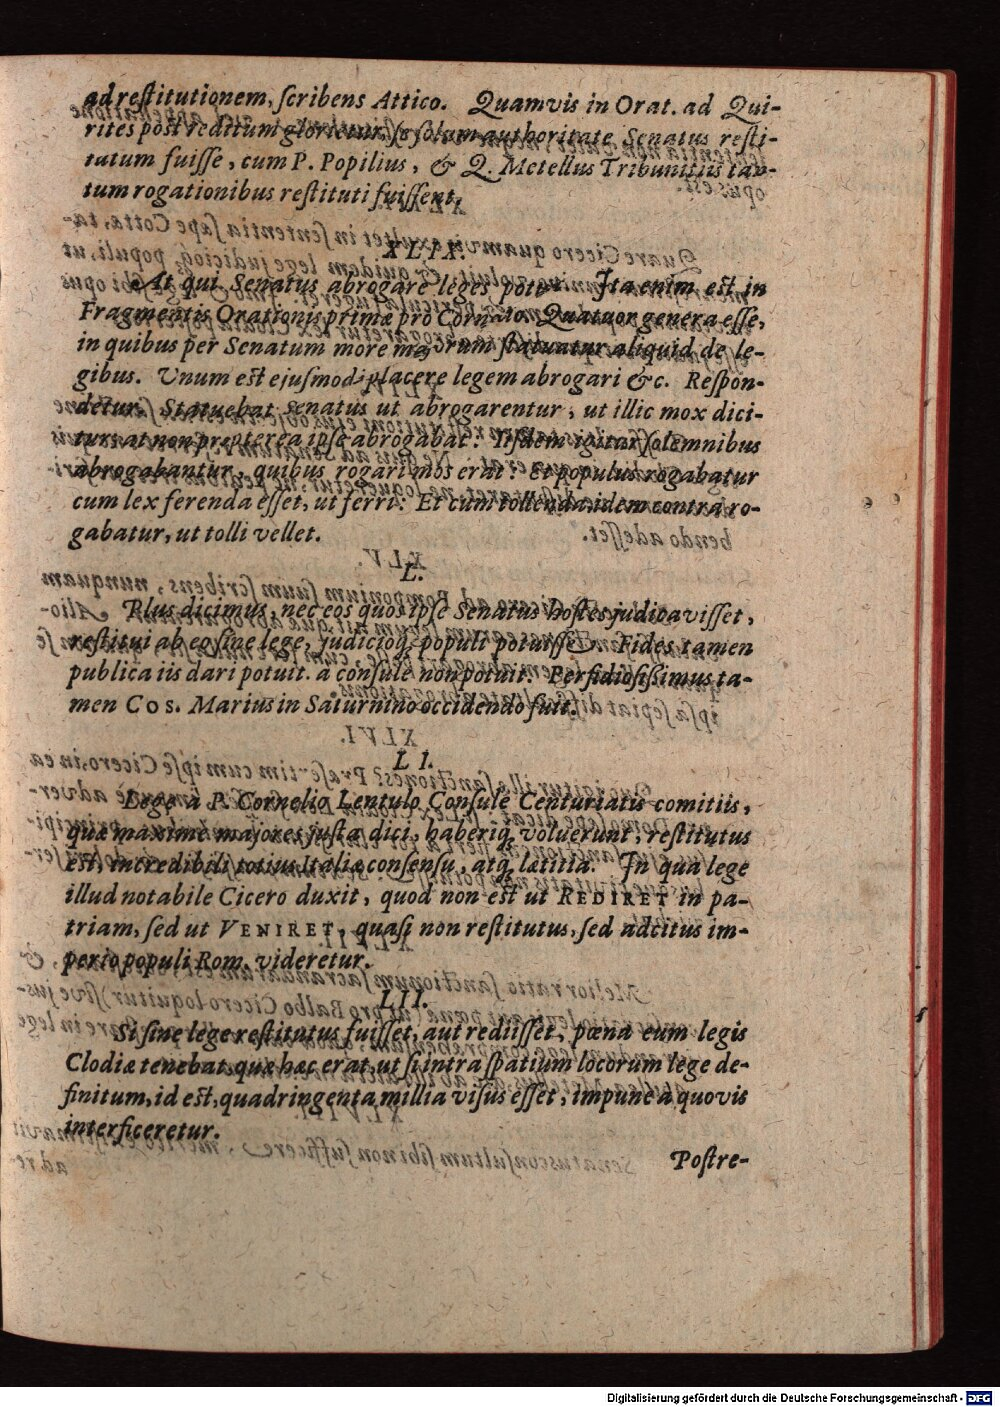 ad restitutionem, ſcribens Attico. Quamvis in Orat. ad Qui-
rites post reditum glorietur, ſe ſolum authoritate Senatus reſti-
tutum fuiſſe, cum P. Popilius, & Q. Metellus Tribunitiis tan-
tum rogationibus reſtituti fuiſſent.
XLIX.
At qui Senatus abrogare leges Ita enim est in
Fragmentis Orationis primæ pro Cornelio. Quatuor genera eſſe,
in quibus per Senatum more majorum ſtatuatur aliquid de le-
gibus. Unum est ejuſmodi placere legem abrogari &c. Reſpon-
detur. Statuebat senatus ut abrogarentur, ut illic mox dici-
tur: at non propterea ipſe abrogabat. Iiſdem igitur ſolemnibus
abrogabantur, quibus rogari mos erat. Et populus rogabatur
cum lex ferenda eſſet, ut ferri: Et cum tollenda, idem contra ro-
gabatur, ut tolli vellet.
L.
Plus dicimus, nec eos quos ipſe Senatus hoſtes judicaviſſet,
reſtitui ab eo ſine lege, judicioq́; populi potuiſſe. Fides tamen
publica iis dari potuit. à conſule non potuit. Perfidioſiſſimus ta-
men Cos. Marius in Saturnino occidendo fuit.
LI.
Lege à P. Cornelio Lentulo Conſule Centuriatis comitiis,
quæ maximè majores juſta dici, haberiq́; voluerunt, reſtitutus
est, incredibili totius Italiæ conſenſu, atq́; lætitia. In qua lege
illud notabile Cicero duxit, quod non est ut REDIRET in pa-
triam, ſed ut VENIRET, quaſi non reſtitutus, ſed adcitus im-
perio populi Rom. videretur.
LII.
Si ſine lege reſtitutus fuiſſet, aut rediiſſet, pœna eum legis
Clodiæ tenebat, quæ hæc erat, ut ſi intra ſpatium locorum lege de-
finitum, id est, quadringenta millia viſus eſſet, impune à quovis
interficeretur.
Poſtre-
Digitalisierung gefördert durch die Deutsche Forschungsgemeinschaft - DFG